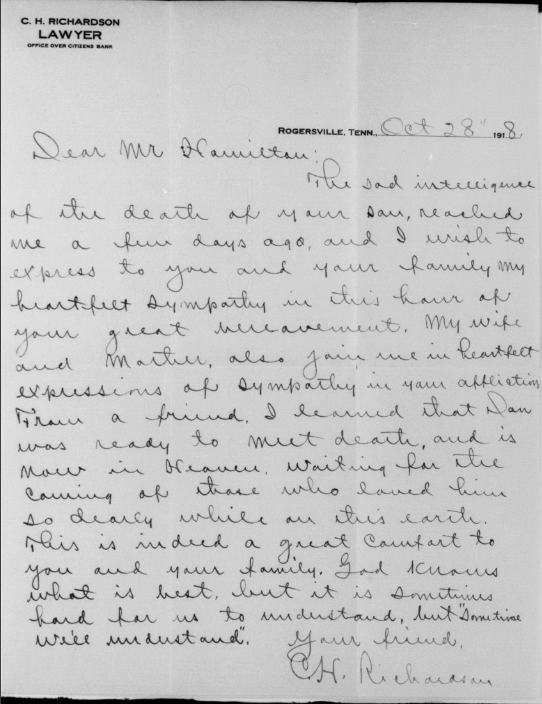 C. H. RICHARDSON
LAWYER
OFFICE OVER CITIZENS BANK
ROGERSVILLE, TENN., Oct 28" 1918
Dear Mr Hamilton:
The sad intelligence
of the death of your son, reached
me a few days ago, and I wish to
express to you and your family my
heartfelt sympathy in this hour of
your great bereavement. My wife
and Mother, also join me in heartfelt
expressions of sympathy in your affliction
From a friend, I learned that Dan
was ready to meet death, and is
now in Heaven, waiting for the
coming of those who loved him
so dearly while on this earth.
This is indeed a great comfort to
you and your family. God knows
what is best, but it is sometimes
hard for us to understand, but "Sometime
we'll understand".
Your friend,
C.H. Richardson